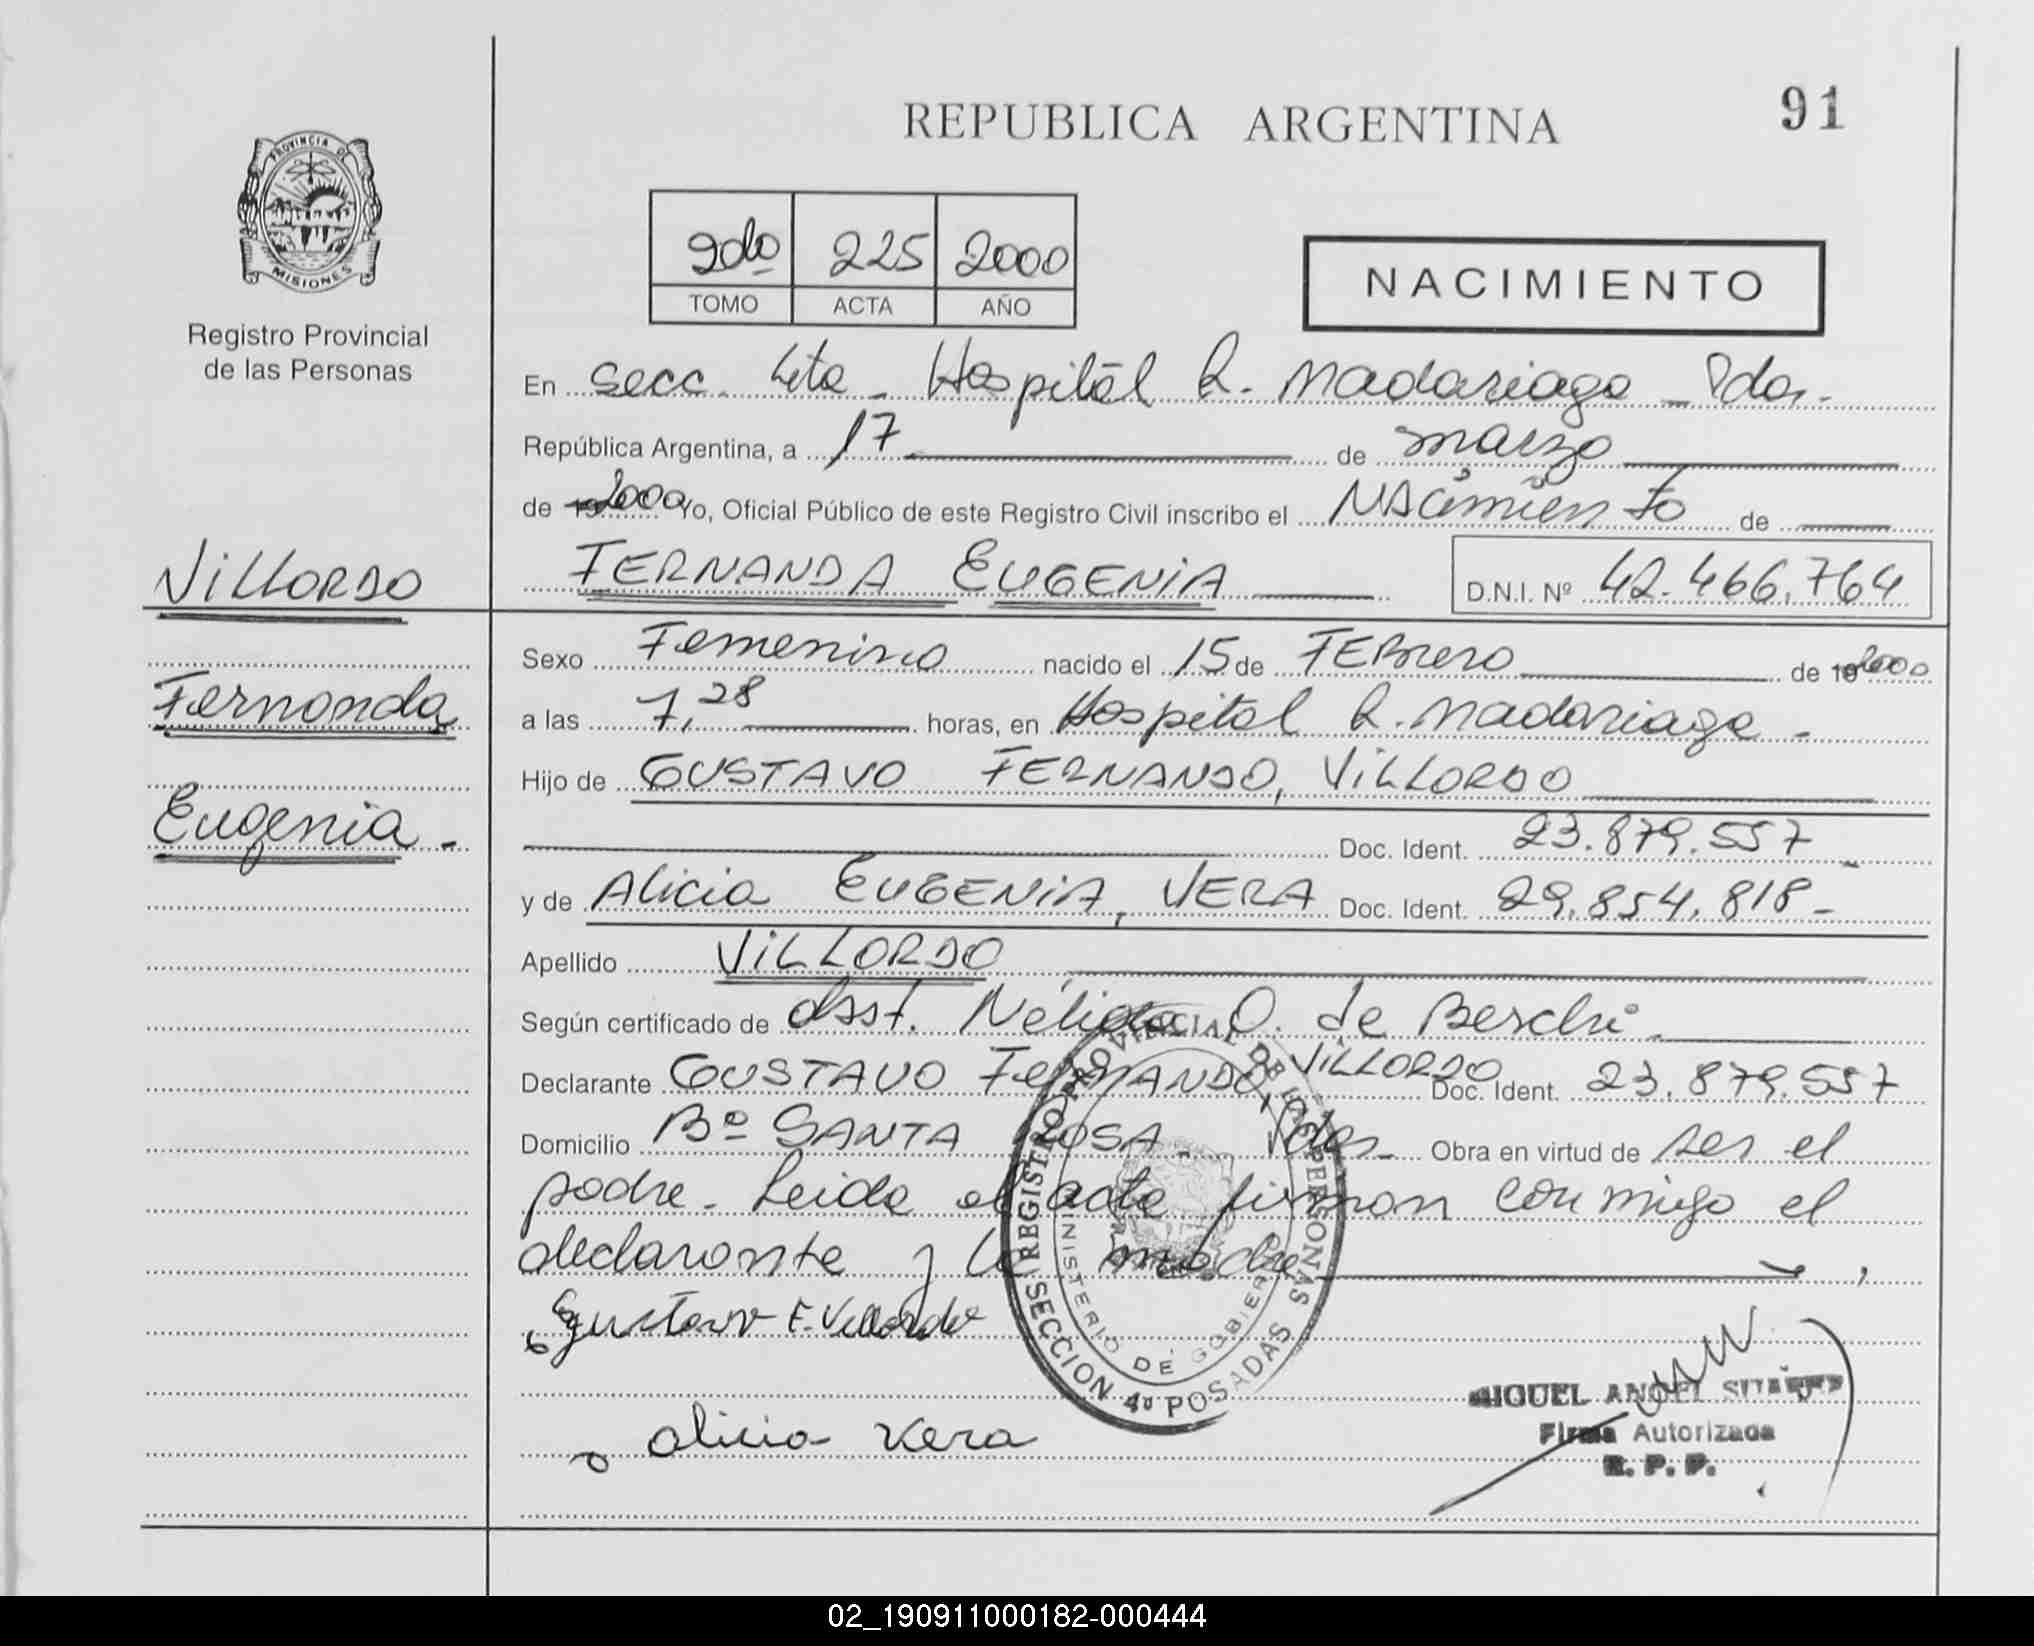 REPUBLICA ARGENTINA
91
PROVINCIA DE
MISIONES
Registro Provincial
de las Personas
2do 225 2000
TOMO ACTA AÑO
NACIMIENTO
En Secc. 4ta - Hospital R. Madariaga - Pdas.
República Argentina, a 17 de marzo
de 2000 Yo, Oficial Público de este Registro Civil inscribo el Nacimiento de
Villordo
FERNANDA EUGENIA D.N.I. Nº 42.466.764
Sexo Femenino nacido el 15 de FEBrero de 2000
Fernanda
a las 7,28 horas, en Hospital R. Madariaga -
Hijo de GUSTAVO FERNANDO, VILLORDO
Eugenia -
Doc. Ident. 23.879.557 -
y de Alicia EUGENIA, VERA Doc. Ident. 29.854.818 -
Apellido VILLORDO
Según certificado de Asst. Nélida O. de Beschi -
Declarante GUSTAVO FERNANDO, VILLORDO Doc. Ident. 23.879.557
Domicilio Bº SANTA ROSA - Pdas - Obra en virtud de ser el
padre. Leida el acta firman conmigo el
declarante y la madre
Gustavo F. Villordo
Alicia Vera
REGISTRO PROVINCIAL DE LAS PERSONAS
SECCION 4º POSADAS
MINISTERIO DE GOBIERNO
MIGUEL ANGEL
Firma Autorizada
R. P. P.
02_190911000182-000444